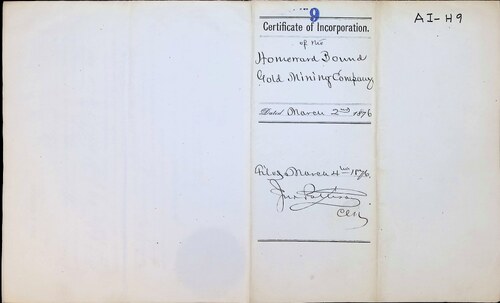 9
AI-H9
Certificate of Incorporation.
of the
Homeward Bound
Gold Mining Company
Dated March 2nd 1876
Filed March 4th 1876.
Clk